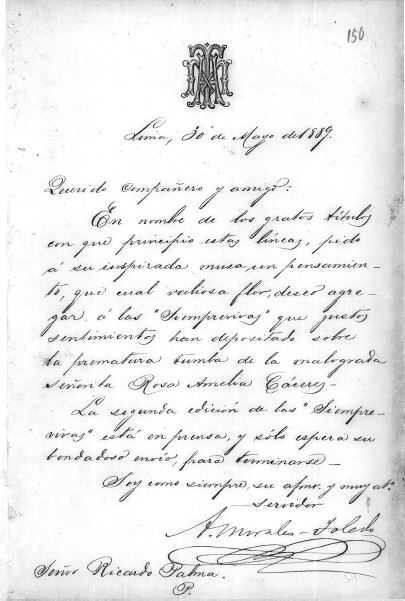 150
Lima, 30 de Mayo de 1889.
Querido Compañero y amigo:
En nombre de los gratos títulos
con que principio estas líneas, pido
á su inspirada musa, un pensamien-
to, que cual valiosa flor, deseo agre-
gar á las "Siemprevivas" que justos
sentimientos han depositado sobre
la prematura tumba de la malograda
Señorita Rosa Amelia Cáceres-
La segunda edición de las "Siempre-
vivas" está en prensa, y sólo espera su
bondadoso envío, para terminarse-
Soy como siempre, su afmo. y muy at°.
servidor
A. Morales-Toledo
Señor Ricardo Palma.
P.